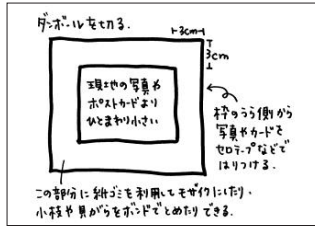 ダンボールを切る.
3cm
3cm
現地の写真や
ポストカードより
ひとまわり小さい
枠のうら側から
写真やカードを
セロテープなどで
はりつける.
この部分に紙ゴミを利用してモザイクにしたり.
小枝や貝がらをボンドでとめたりできる.